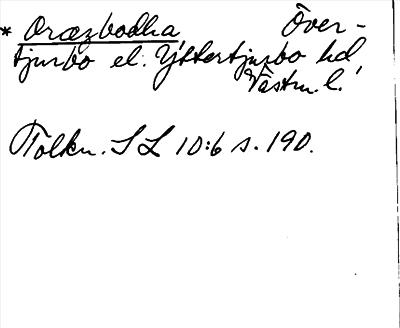 * Oræzbodha, Över-
tjurbo el. Yttertjurbo hd,
Västm. l.
Tolkn. SL 10:6 s. 190.